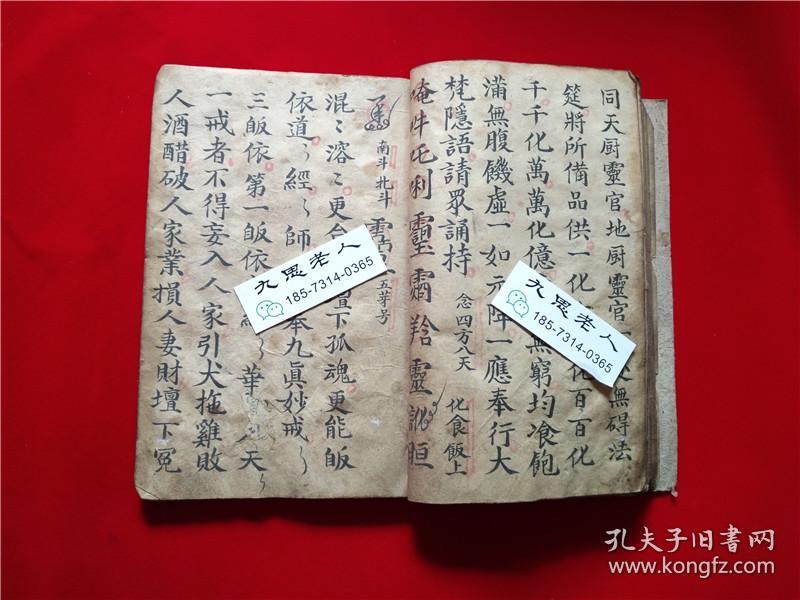 同天厨靈官地厨靈官 無碍法
筵將所備品供一化 化百百化
千千化萬萬化億 無窮均飡飽
滿無腹饑虛一如元降一應奉行大
梵隱語請眾誦持 念四方八天 化食飯上
唵吽吒唎靈霨 靈 𣅜
南斗北斗 五芽号
混〻溶〻更 下孤魂更能皈
依道〻經〻師 奉九眞妙戒〻
三皈依第一皈依 〻華 天〻
一戒者不得妄入人家引犬拖雞敗
人酒醋破人家業損人妻財壇下冤
九思老人
185-7314-0365
九思老人
185-7314-0365
孔夫子旧书网
www.kongfz.com